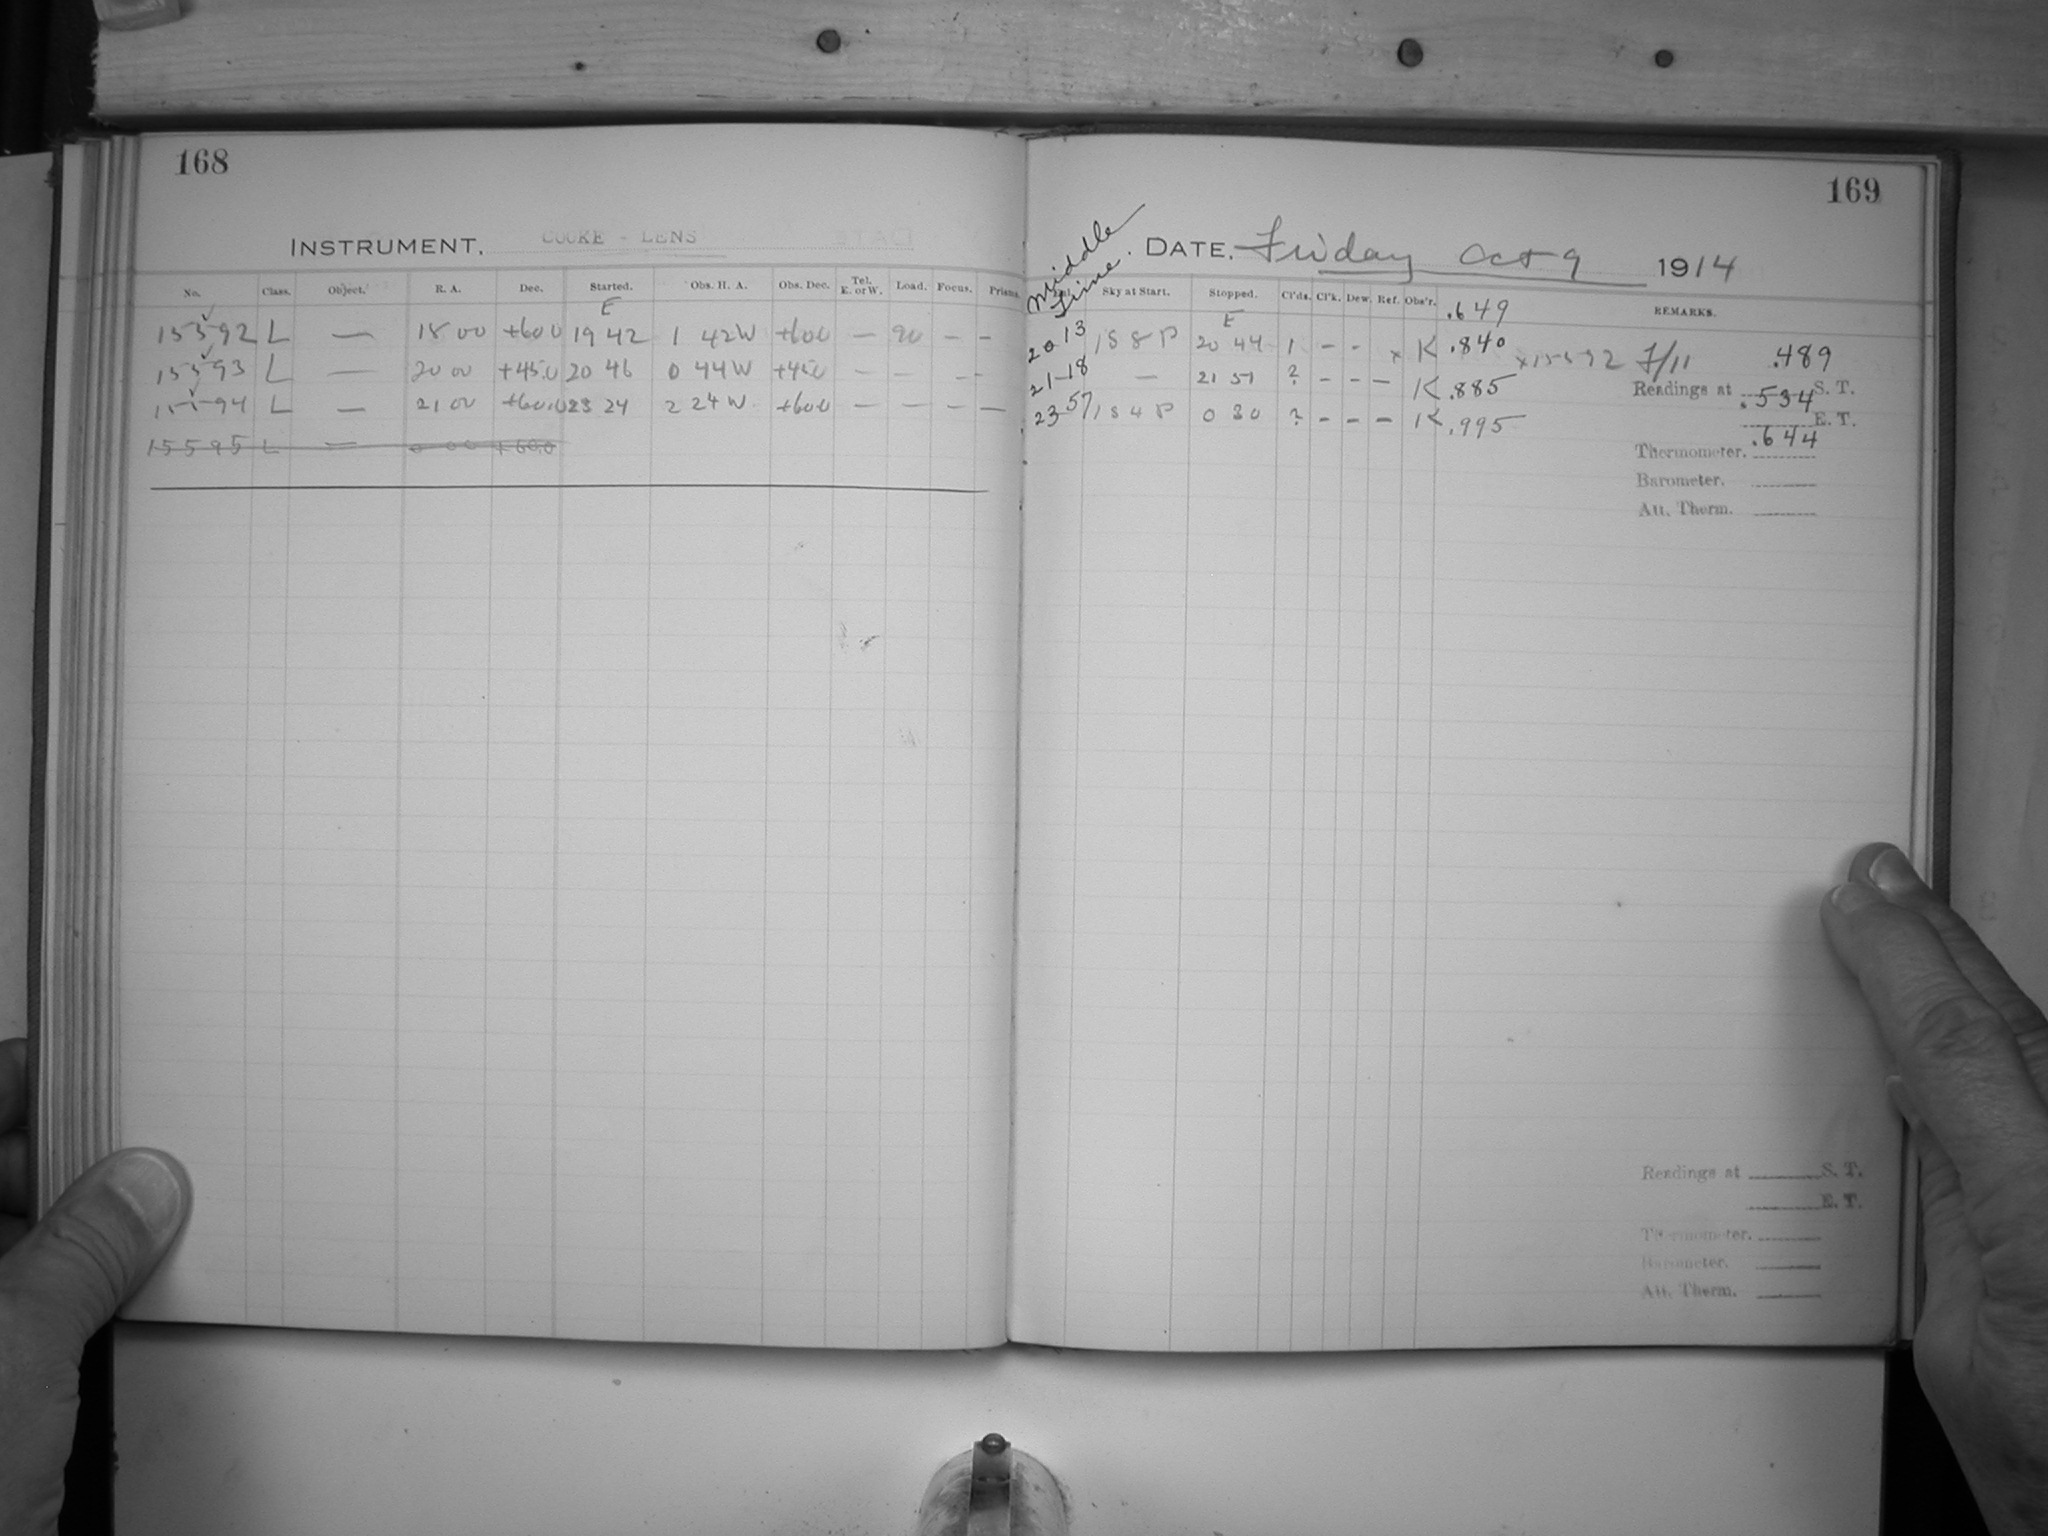 168
INSTRUMENT. COOKE - LENS
No. Class. Object. R. A. Dec. Started. Obs. H. A. Obs. Dec. Tel. E. or W. Load. Focus. Prisms.
E
15592 L — 18 00 +60.0 19 42 1 42W +60.0 — 90 – –
15593 L — 20 00 +45.0 20 46 0 44W +45.0 — – – –
15594 L — 21 00 +60.0 23 24 2 24W +60.0 — — – —
15595 L — 0 00 +60.0
169
Middle Time. DATE. Friday Oct 9 1914
Sky at Start. Stopped. Cl'ds. Cl'k. Dew. Ref. Obs'r. .649 REMARKS.
E
20 13 188P 20 44 1 – – x K .840 x15592 F/11 .489
21-18 — 21 51 ? – – — K .885 Readings at .534 S. T.
23 57 184P 0 30 ? – – – K .995 E. T.
.644
Thermometer.
Barometer.
Att. Therm.
Readings at S. T.
E. T.
Thermometer.
Barometer.
Att. Therm.